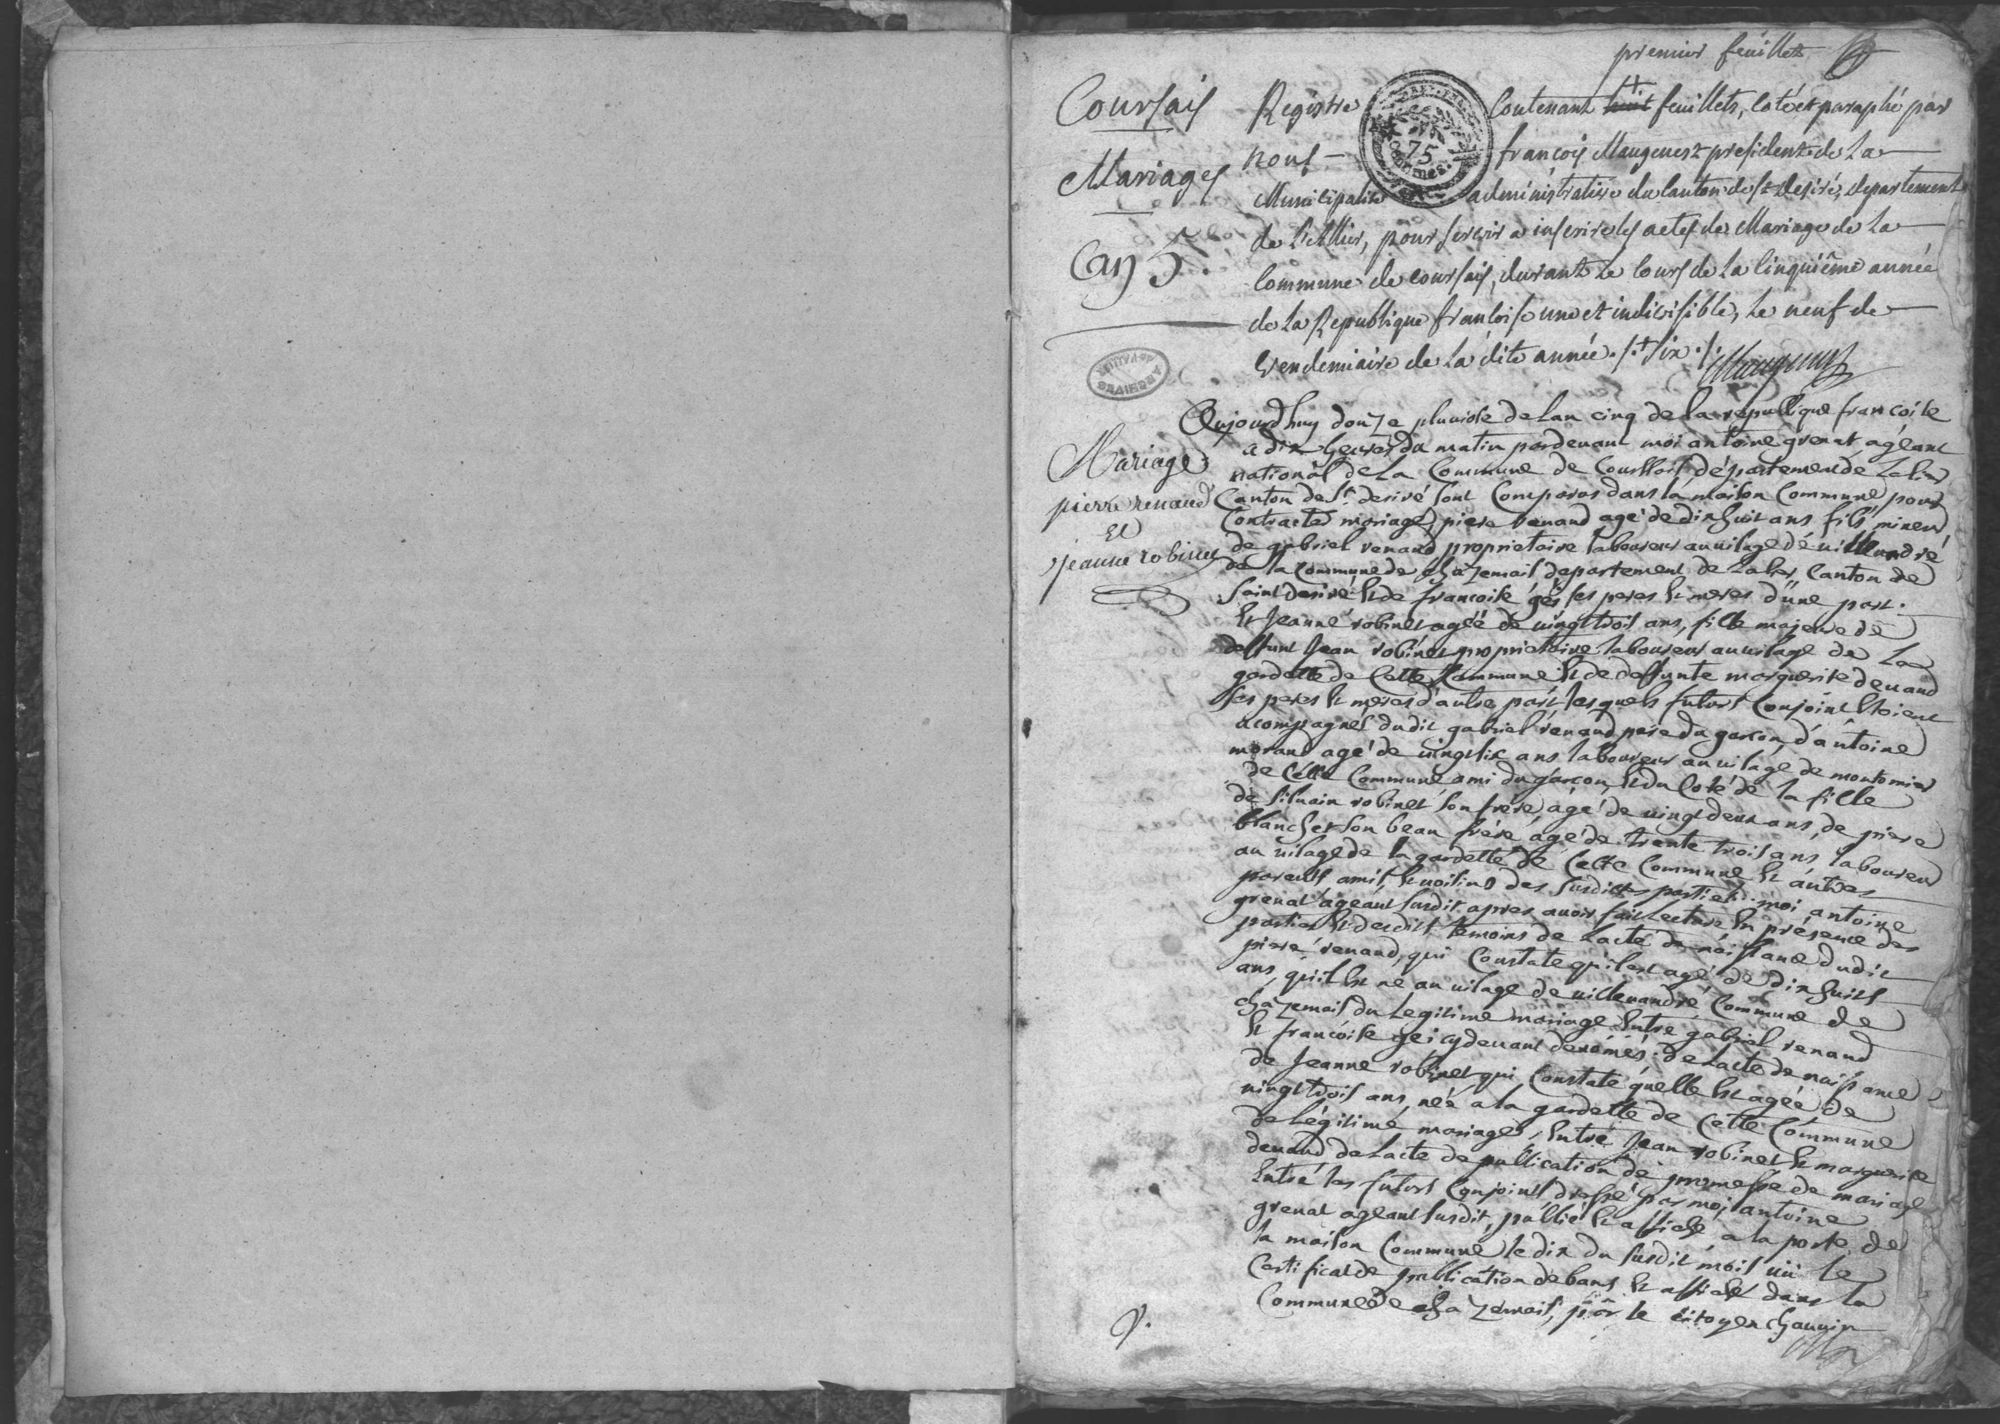 premier feuillet
Coursais
Mariages
an 5.
Registre Contenant huit feuillets, coté et paraphé par
nous — françois Maugenest president de La
Municipalité administrative du Canton de st desiré, departement
de L'allier, pour servir a inscrire les actes de Mariage de La
Commune de Coursais, durant Le Cours de La Cinquiême année
de La Republique françoise une et indivisible, Le neuf de
Vendemiaire de La dite année ./. + six ./.
Maugenest
75
Centimes
ARCHIVES
DE L'ALLIER
Mariage
pierre renaud
Et
Jeanne robinet
Aujourdhuy douze pluviose de Lan cinq de la republique francoise
a dix heures du matin pardevant moi antoine grenat agéant
national de La Commune de Courssais département de Lalier
Canton de St desiré sont Comparas dans la maison Commune pour
Contracter mariage, piere renaud agé de dix huit ans fils mineur
de gabriel renaud proprietaire laboureur au vilage de villevandré
de la Commune de chazemais departement de Lalier Canton de
Saint Desiré Et de francoise gei ses peres Et meres d'une part.
Et Jeanne robinet agée de vingt trois ans, fille majeure de
deffunt Jean robinet proprietaire laboureur au vilage de La
gardette de Cette Commune Et de deffunte marguerite devaud
ses peres Et meres d'autre part lesquels futurs Conjoint Etoient
acompagnés dudit gabriel renaud pere du garcon, d'antoine
morand agé de vingt six ans laboureur au vilage de montomier
de Cette Commune ami du garcon, Et du Coté de la fille
de silvain robinet son frere, agé de vingt deux ans, de piere
blanchet son beau frére agé de trente trois ans, laboureur
au vilage de la gardette de Cette Commune Et autres
parents amis Et voisins des susdittes parties. moi antoine
grenat ageant susdit apres avoir fait Lecture En présence des
parties Et desdits témoins de Lacte de naissance dudit
piere renaud, qui Constate qu'il est agé de dix huits
ans, qu'il Est né au vilage de villevandré Commune de
chazemais du Legitime mariage Entre gabriel renaud
Et francoise gei cy devant denomés. de Lacte de naissance
de Jeanne robinet qui Constate quelle Est agée de
vingt trois ans, née a la gardette de Cette Commune
de Légitime mariage, Entre Jean robinet Et marguerite
devaud de Lacte de publication de promesse de mariage
Entre les futurs Conjoints dressé par moi antoine
grenat ageant susdit, publié Et affiché a la porte de
la maison Commune le dix du susdit mois vü le
Certificat de publication de bans Et affiché dans la
Commune de chazemais, par le citoyen chauvin